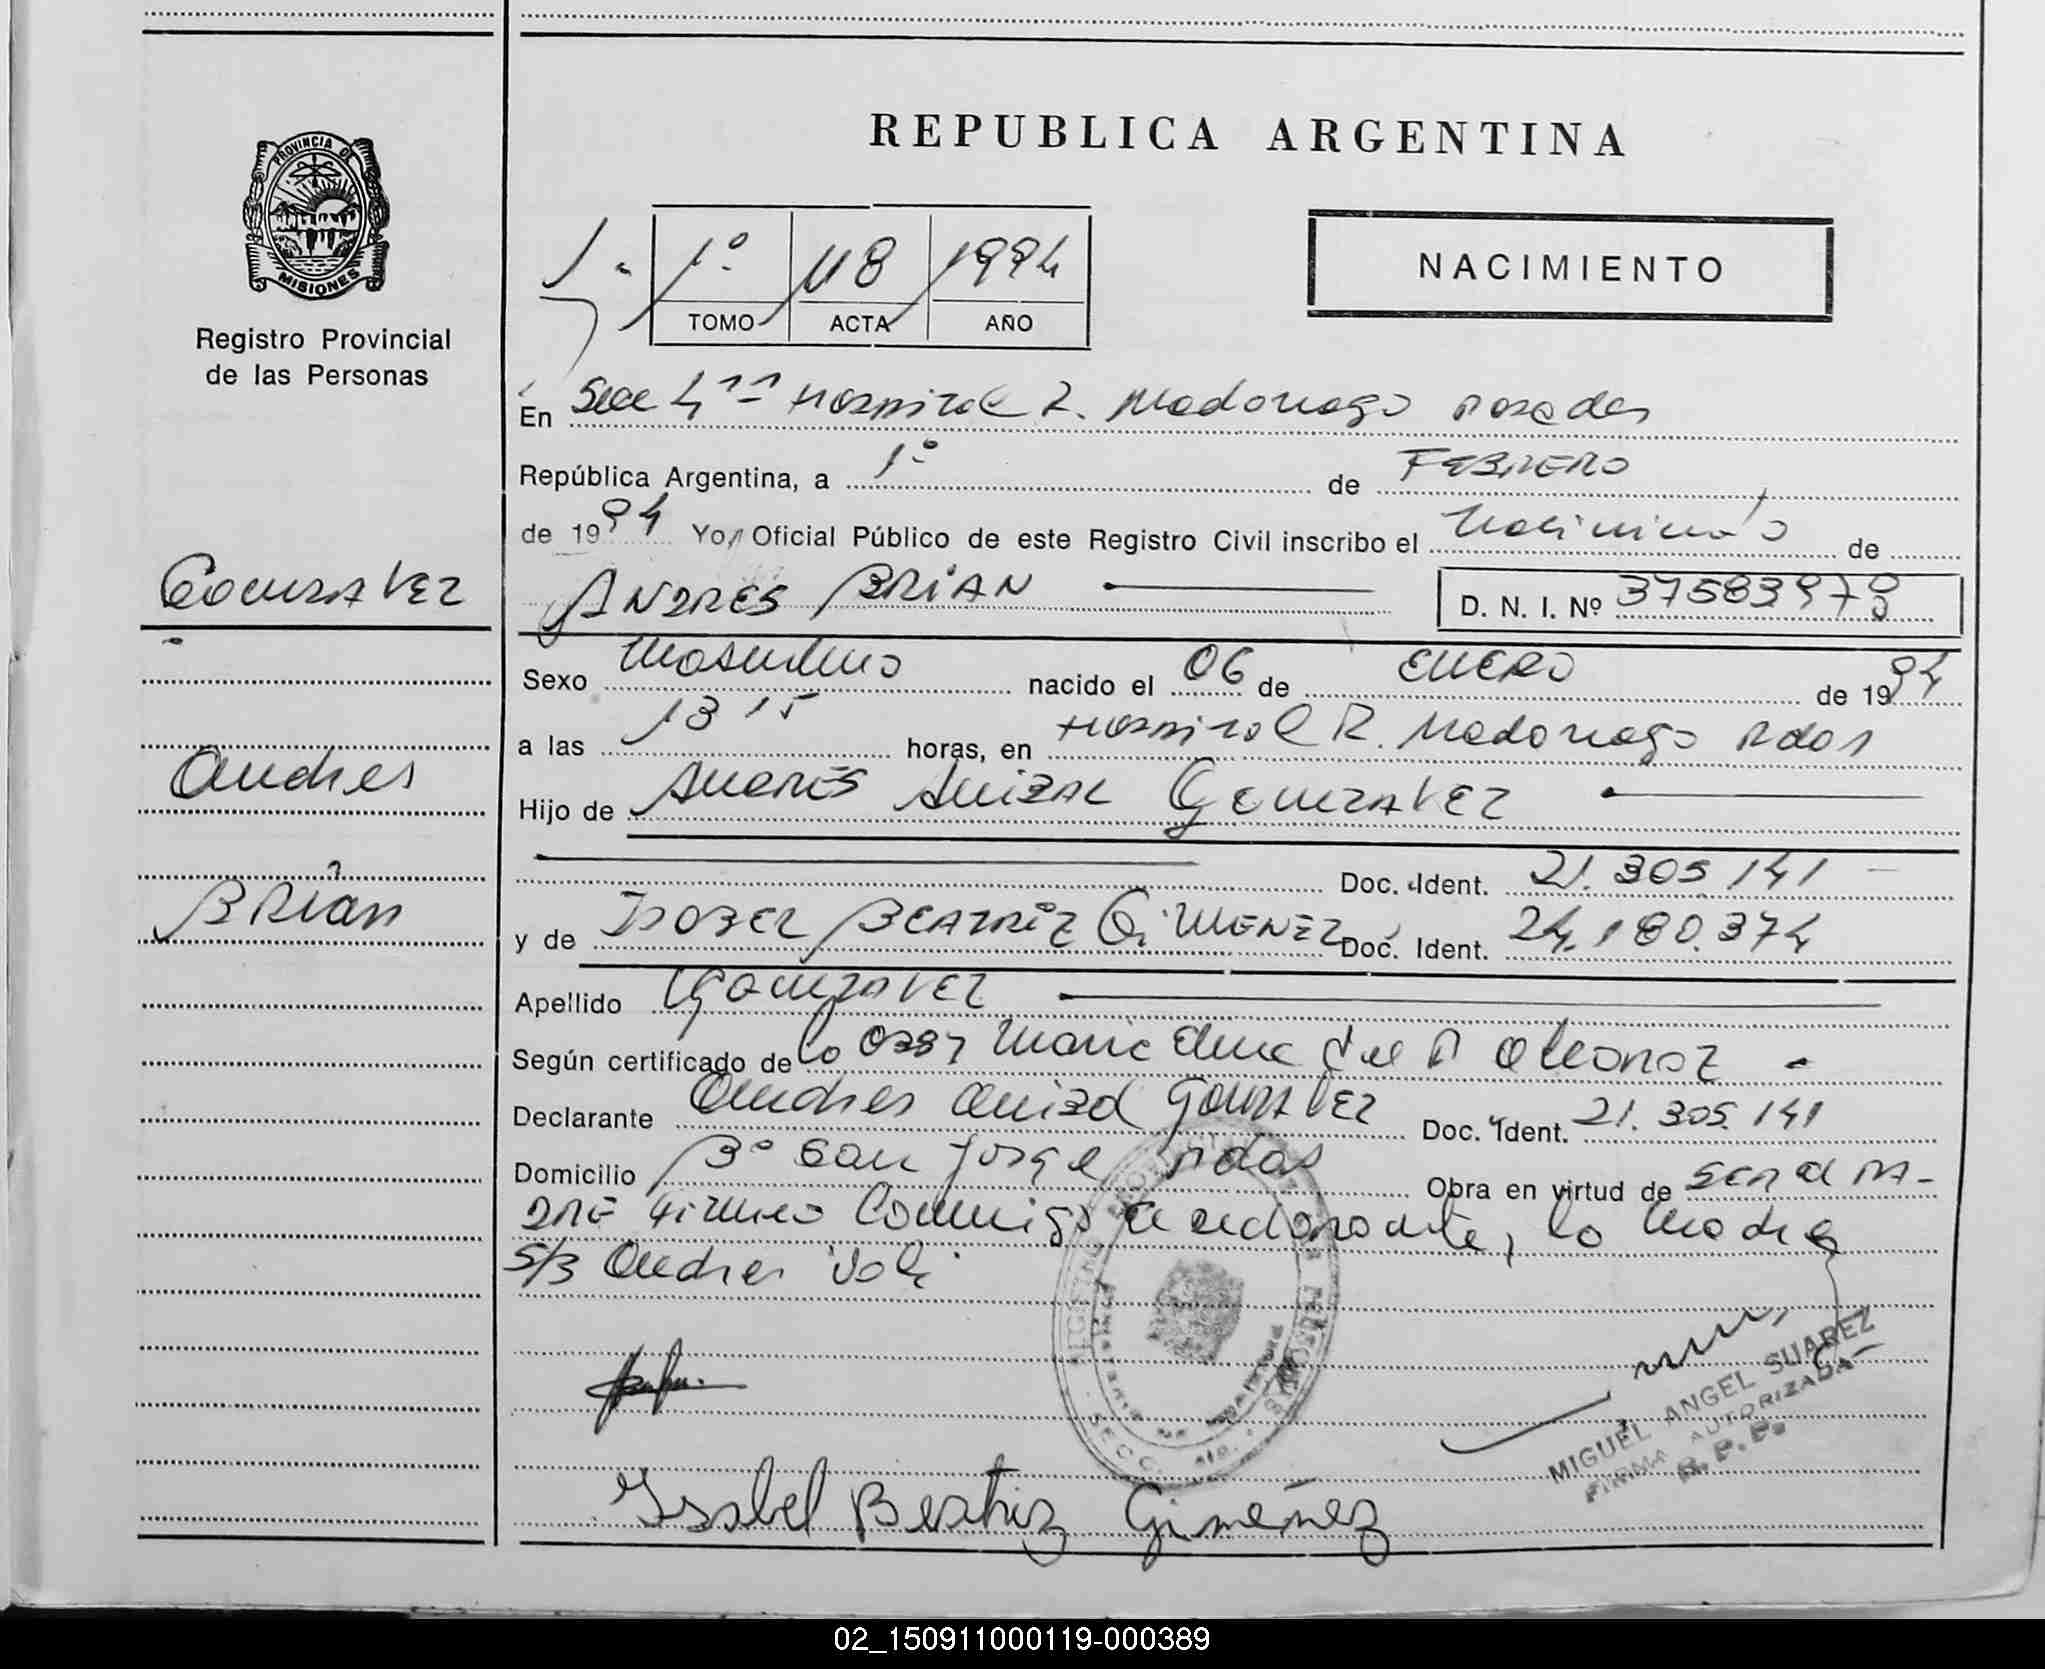 REPUBLICA ARGENTINA
PROVINCIA DE
MISIONES
Registro Provincial
de las Personas
1º 118 1994
TOMO ACTA AÑO
NACIMIENTO
En Secc 4ta Hospital R. Madariaga Posadas
República Argentina, a 1º de FEBRERO
de 1994 Yo, Oficial Público de este Registro Civil inscribo el Nacimiento de
ANDRES BRIAN D. N. I. Nº 37583978
GONZALEZ
Andres
BRian
Sexo Masculino nacido el 06 de ENERO de 1994
a las 13 15 horas, en Hospital R. Madariaga Pdas
Hijo de ANDRES ANIBAL GONZALEZ
Doc. Ident. 21.305.141
y de ISABEL BEATRIZ GIMENEZ Doc. Ident. 24.180.374
Apellido GONZALEZ
Según certificado de la Maria Elena del
Declarante Andres Anibal GONZALEZ Doc. Ident. 21.305.141
Domicilio Bº San Jorge Pdas Obra en virtud de SER el PA-
DRE Firman Conmigo el declarante, la Madre
S/B Andres Vale
MIGUEL ANGEL SUAREZ
FIRMA AUTORIZADA
R.P.P.
Isabel Beatriz Giménez
02_150911000119-000389